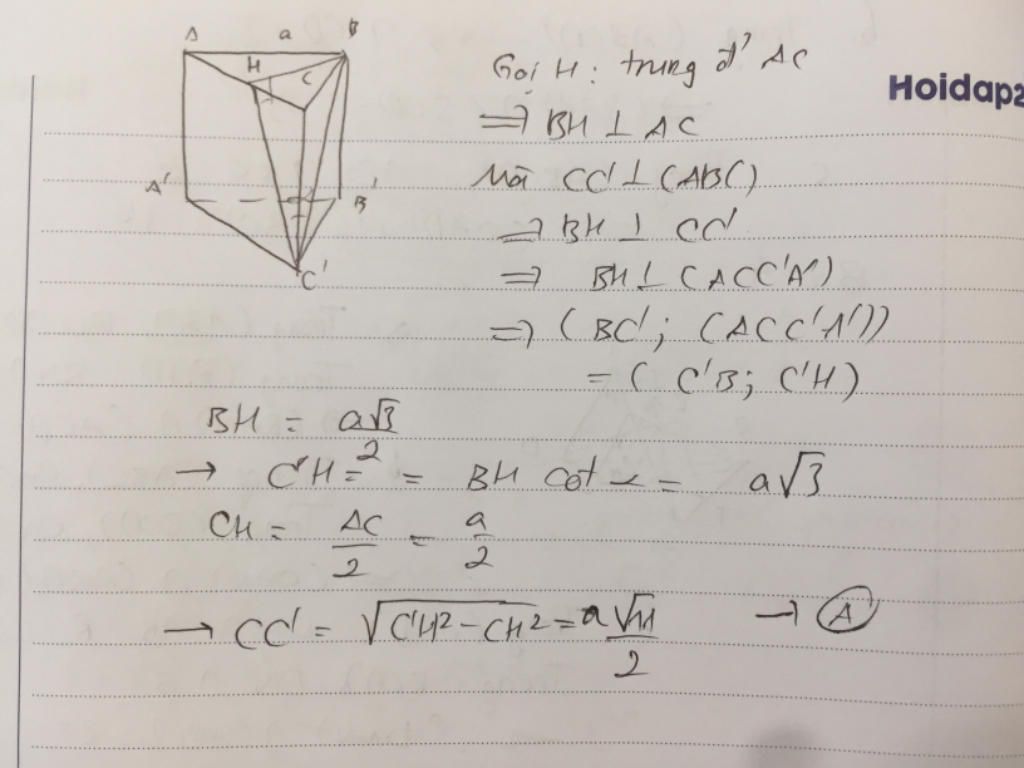 A a B
H C
A' B'
C'
Gọi H: trung đ' AC
⇒ BH ⊥ AC
Mà CC' ⊥ (ABC)
⇒ BH ⊥ CC'
⇒ BH ⊥ (ACC'A')
⇒ (BC'; (ACC'A'))
= (C'B; C'H)
BH = a√3/2
→ C'H = = BH cot α = a√3
CH = AC/2 = a/2
→ CC' = √(C'H² - CH²) = a√11/2 → A
Hoidap2